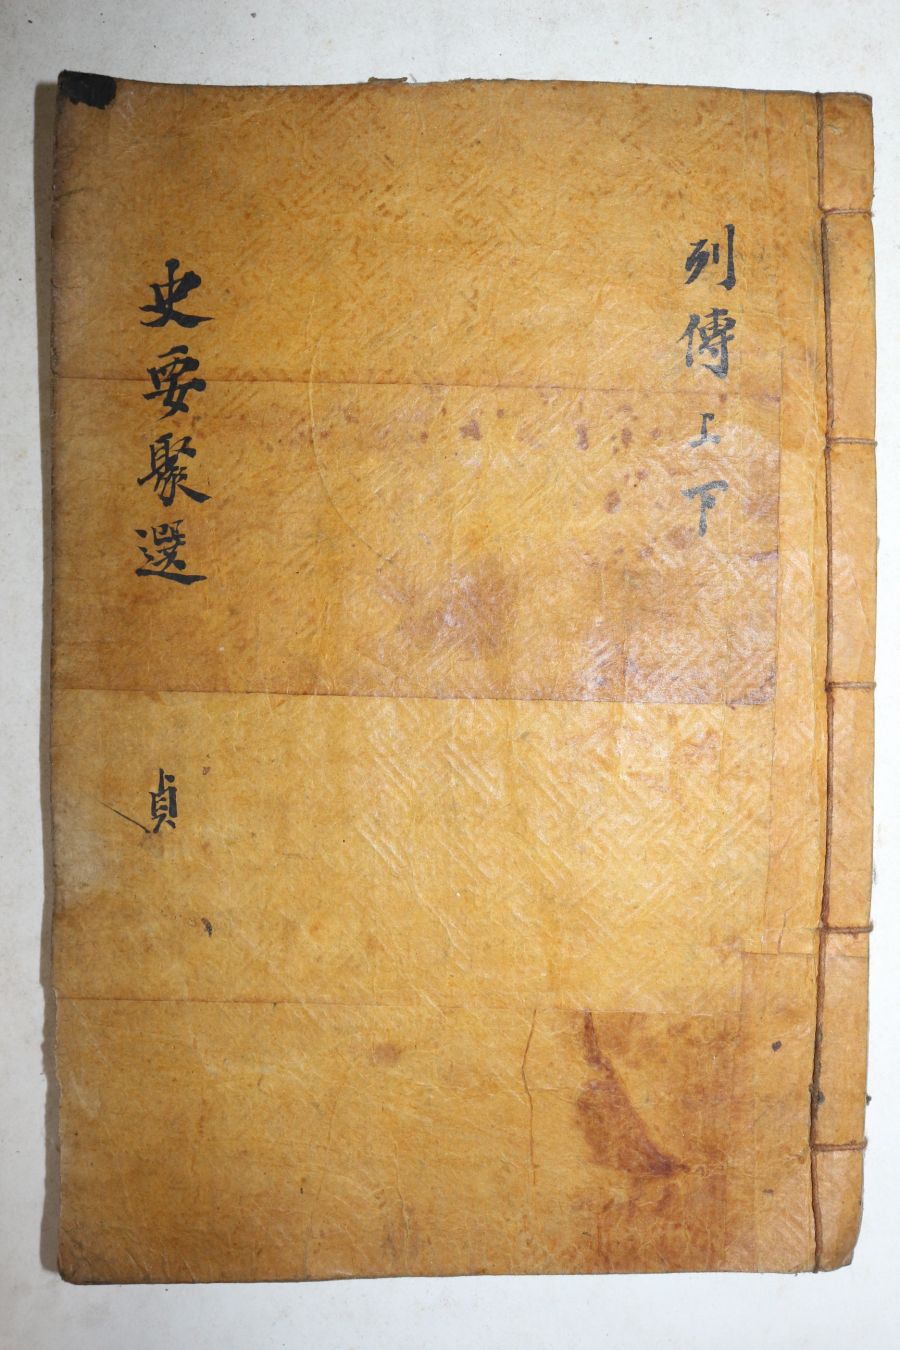 列傳上下
史要聚選
貞